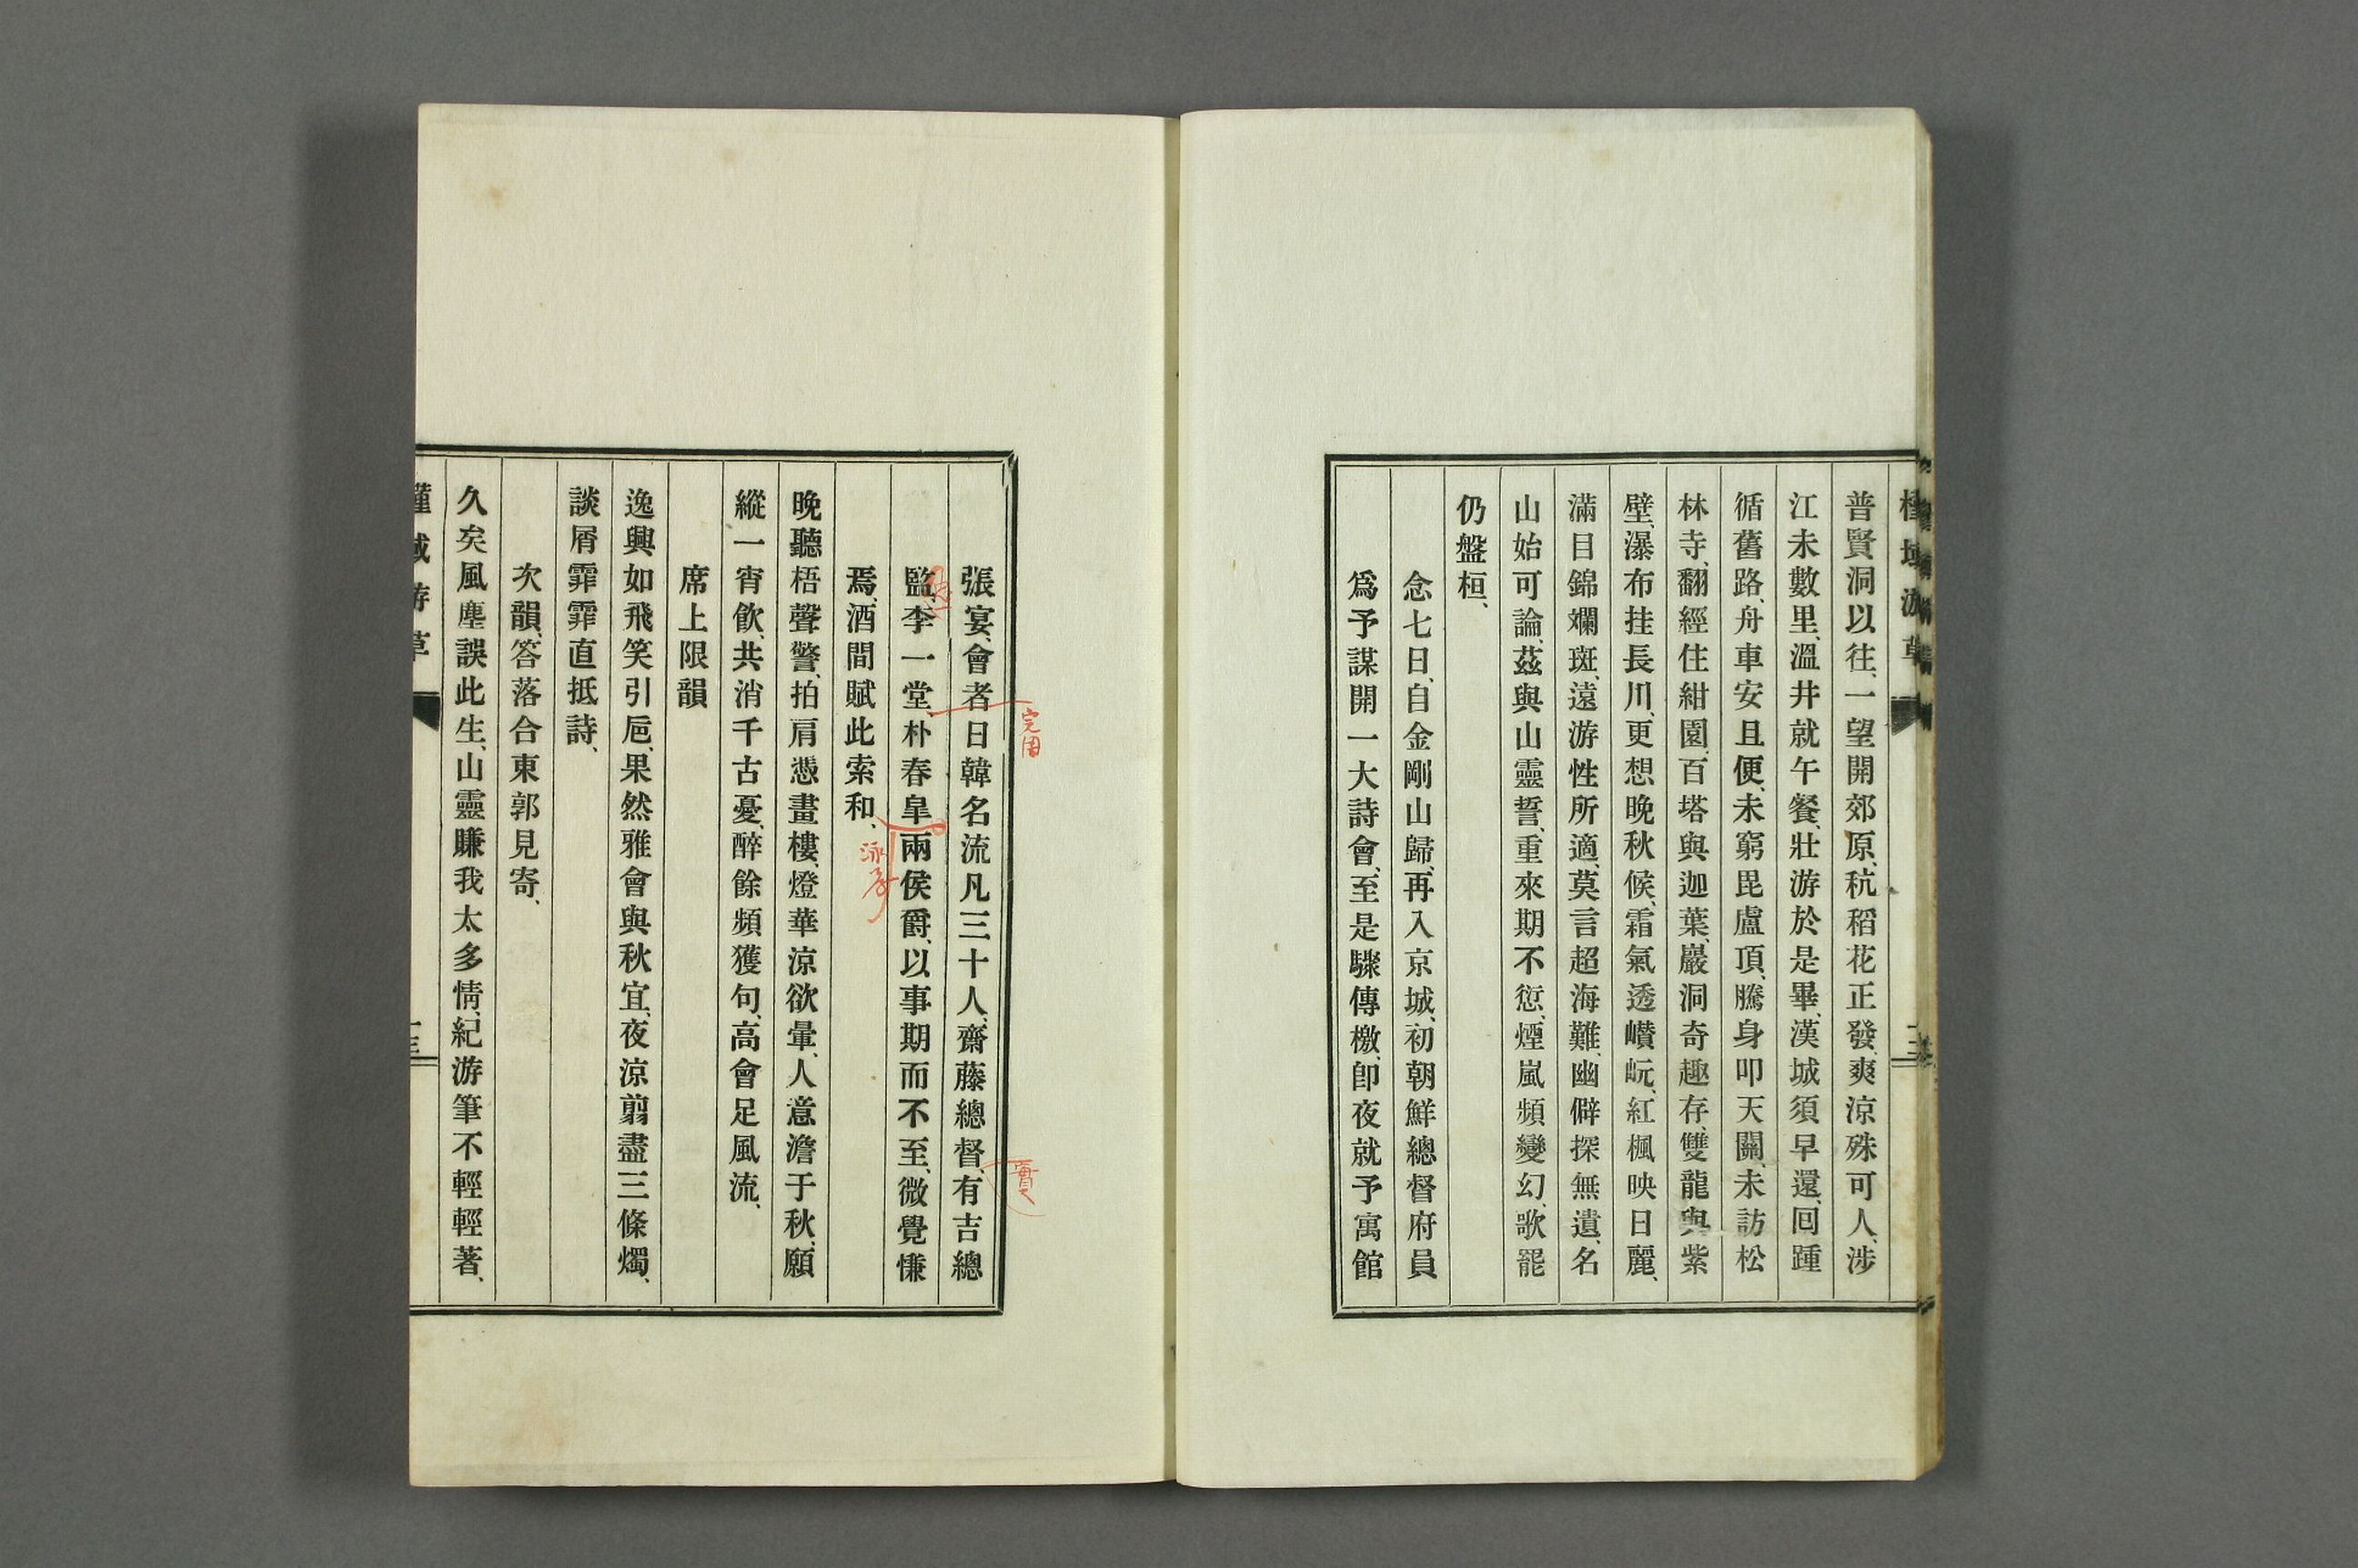 普賢洞以往、一望開郊原、秔稻花正發、爽涼殊可人、涉
江未數里、溫井就午餐、壯游於是畢、漢城須早還、回踵
循舊路、舟車安且便、未窮毘盧頂、騰身叩天關、未訪松
林寺、翻經住紺園、百塔與迦葉、巖洞奇趣存、雙龍與紫
壁、瀑布挂長川、更想晚秋候、霜氣透巑岏、紅楓映日麗、
滿目錦斕斑、遠游性所適、莫言超海難、幽僻探無遺、名
山始可論、茲與山靈誓、重來期不愆、煙嵐頻變幻、歌罷
仍盤桓、
念七日、自金剛山歸、再入京城、初朝鮮總督府員
爲予謀開一大詩會、至是驟傳檄、卽夜就予寓館
張宴、會者日韓名流凡三十人、齋藤總督、有吉總
監、李一堂朴春皐兩侯爵、以事期而不至、微覺慊
焉、酒間賦此索和、
晚聽梧聲警、拍肩憑畫樓、燈華涼欲暈、人意澹于秋、願
縱一宵飮、共消千古憂、醉餘頻獲句、高會足風流、
席上限韻
逸興如飛笑引巵、果然雅會與秋宜、夜涼翦盡三條燭、
談屑霏霏直抵詩、
次韻、答落合東郭見寄、
久矣風塵誤此生、山靈賺我太多情、紀游筆不輕輕著、
完用
實
泳孝